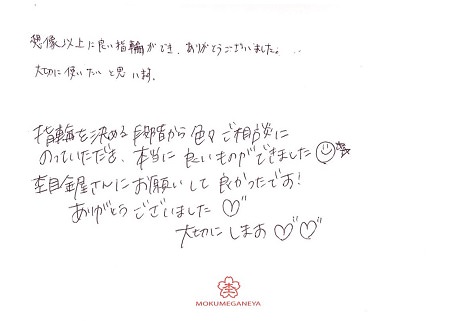 想像以上に良い指輪ができ、ありがとうございました。
大切に使いたいと思います。
指輪を決める段階から色々ご相談に
のっていただき、本当に良いものができました
杢目金屋さんにお願いして良かったです!
ありがとうございました♡
大切にします♡♡
杢
MOKUMEGANEYA